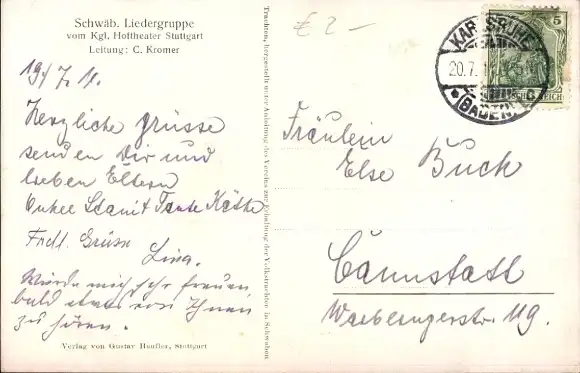 Schwäb. Liedergruppe
vom Kgl. Hoftheater Stuttgart
Leitung: C. Kromer
19/7 11.
Herzliche Grüsse
senden Dir und
lieben Eltern
Onkel Tante Käthe
Frdl. Grüsse
Lina.
Würde mich sehr freuen
bald etwas von Ihnen
zu hören.
Verlag von Gustav Haufler, Stuttgart
Trachten, hergestellt unter Anleitung des Vereins zur Erhaltung der Volkstrachten in Schwaben
€ 2-
KARLSRUHE
20.7.
BADEN
5
REICH
Fräulein
Else Buck
Cannstatt
119.